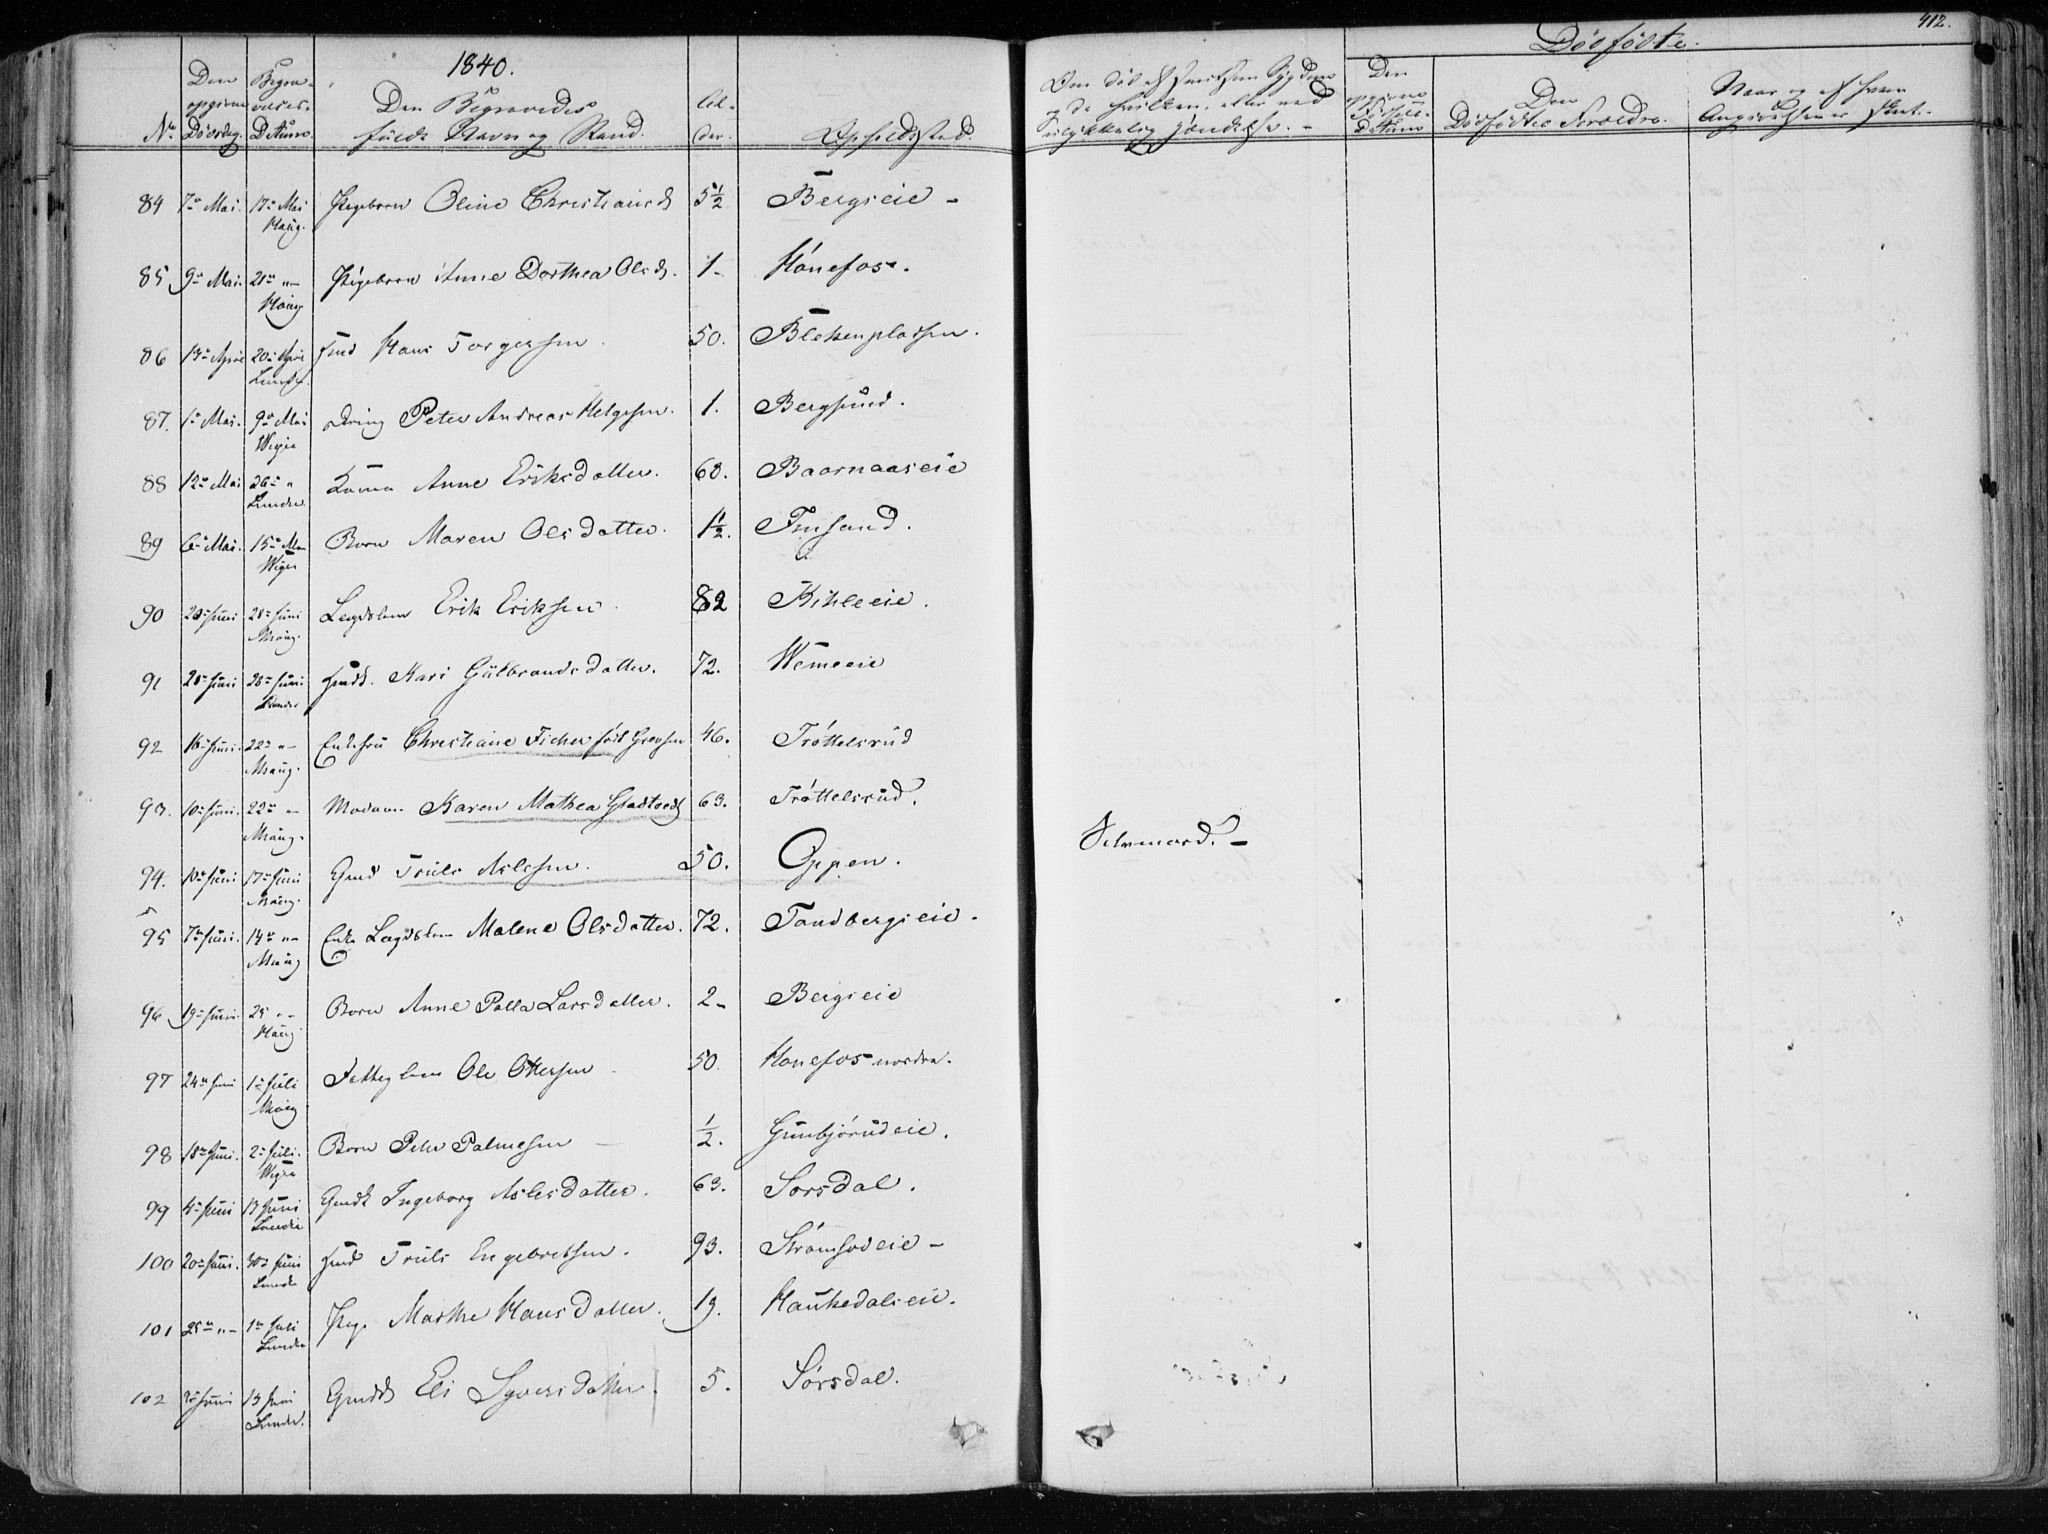 412.
1840.
Dødfødte.
No
Den opgivne Dødsdag.
Begravelses-Datum.
Den Begravedes fulde Navn og Stand.
Alder.
Opholdssted.
Den
Den Dødfødtes Forældre.
84 7de Mai. 17de Mai Haug. Pigebarn Oline Christiansd 5 1/2 Bergseie -
85 9de Mai. 21de "- Haug Pigebarn Anne Dorthea Olsd. 1- Hønefos.
86 13de April 20de April Lunder. Hans Torgersen. 50. Blekenpladsen.
87. 1de Mai. 9de Mai Wegie Dreng Peter Andreas Helgesen. 1. Bergsund.
88 12de Mai 26de " Lunder. Kone Anne Eriksdatter. 60. Baarnaaseie
89 6de Mai. 15de Mai Wigie Barn Maren Olsdatter. 1 1/2. Finsand.
90 20de Juni 28de Juni Haug. Lægdslem Erik Eriksen. 82 Kihleeie.
91 20de Juni 28de Juni Lunder Kari Gulbrandsdatter. 72. Wemeeie
92 16de Juni. 22de "- Haug. Enkefru Christiane Ficher født Greysen 46. Trøttelsrud
93. 10de Juni. 22de "- Haug. Madam Karen Mathea Gladtvedt 63. Trøttelsrud.
94. 10de Juni 17de Juni Haug. Gmd Truls Aslesen. 50. Oppen. Selvmord. -
95 7de Juni. 14de "- Haug Enke Lægdslem Malene Olsdatter. 72. Tandbergseie.
96 19de Juni. 25 "- Haug Barn Anne Palla Larsdatter. 2- Bergseie
97 24de Juni 1de Juli Haug Fattiglem Ole Ottersen 50. Hønefos nordre.
98 18de Juni. 2de Juli. Wigie Barn Peder Palmesen - 1/2. Gunbjørudeie.
99 4de Juni 13 Juni Lunder Gmdk Ingeborg Aslesdatter. 63. Sørsdal.
100 20de Juni. 30de Juni Lunder Truls Engebretsen. 93. Strømsodeie -
101 25de "- 1de Juli Lunder Pige Marthe Hansdatter. 19. Haukedalseie.
102 Juni 13 Juni Lunder. Eli Syversdatter. 5. Sørsdal.